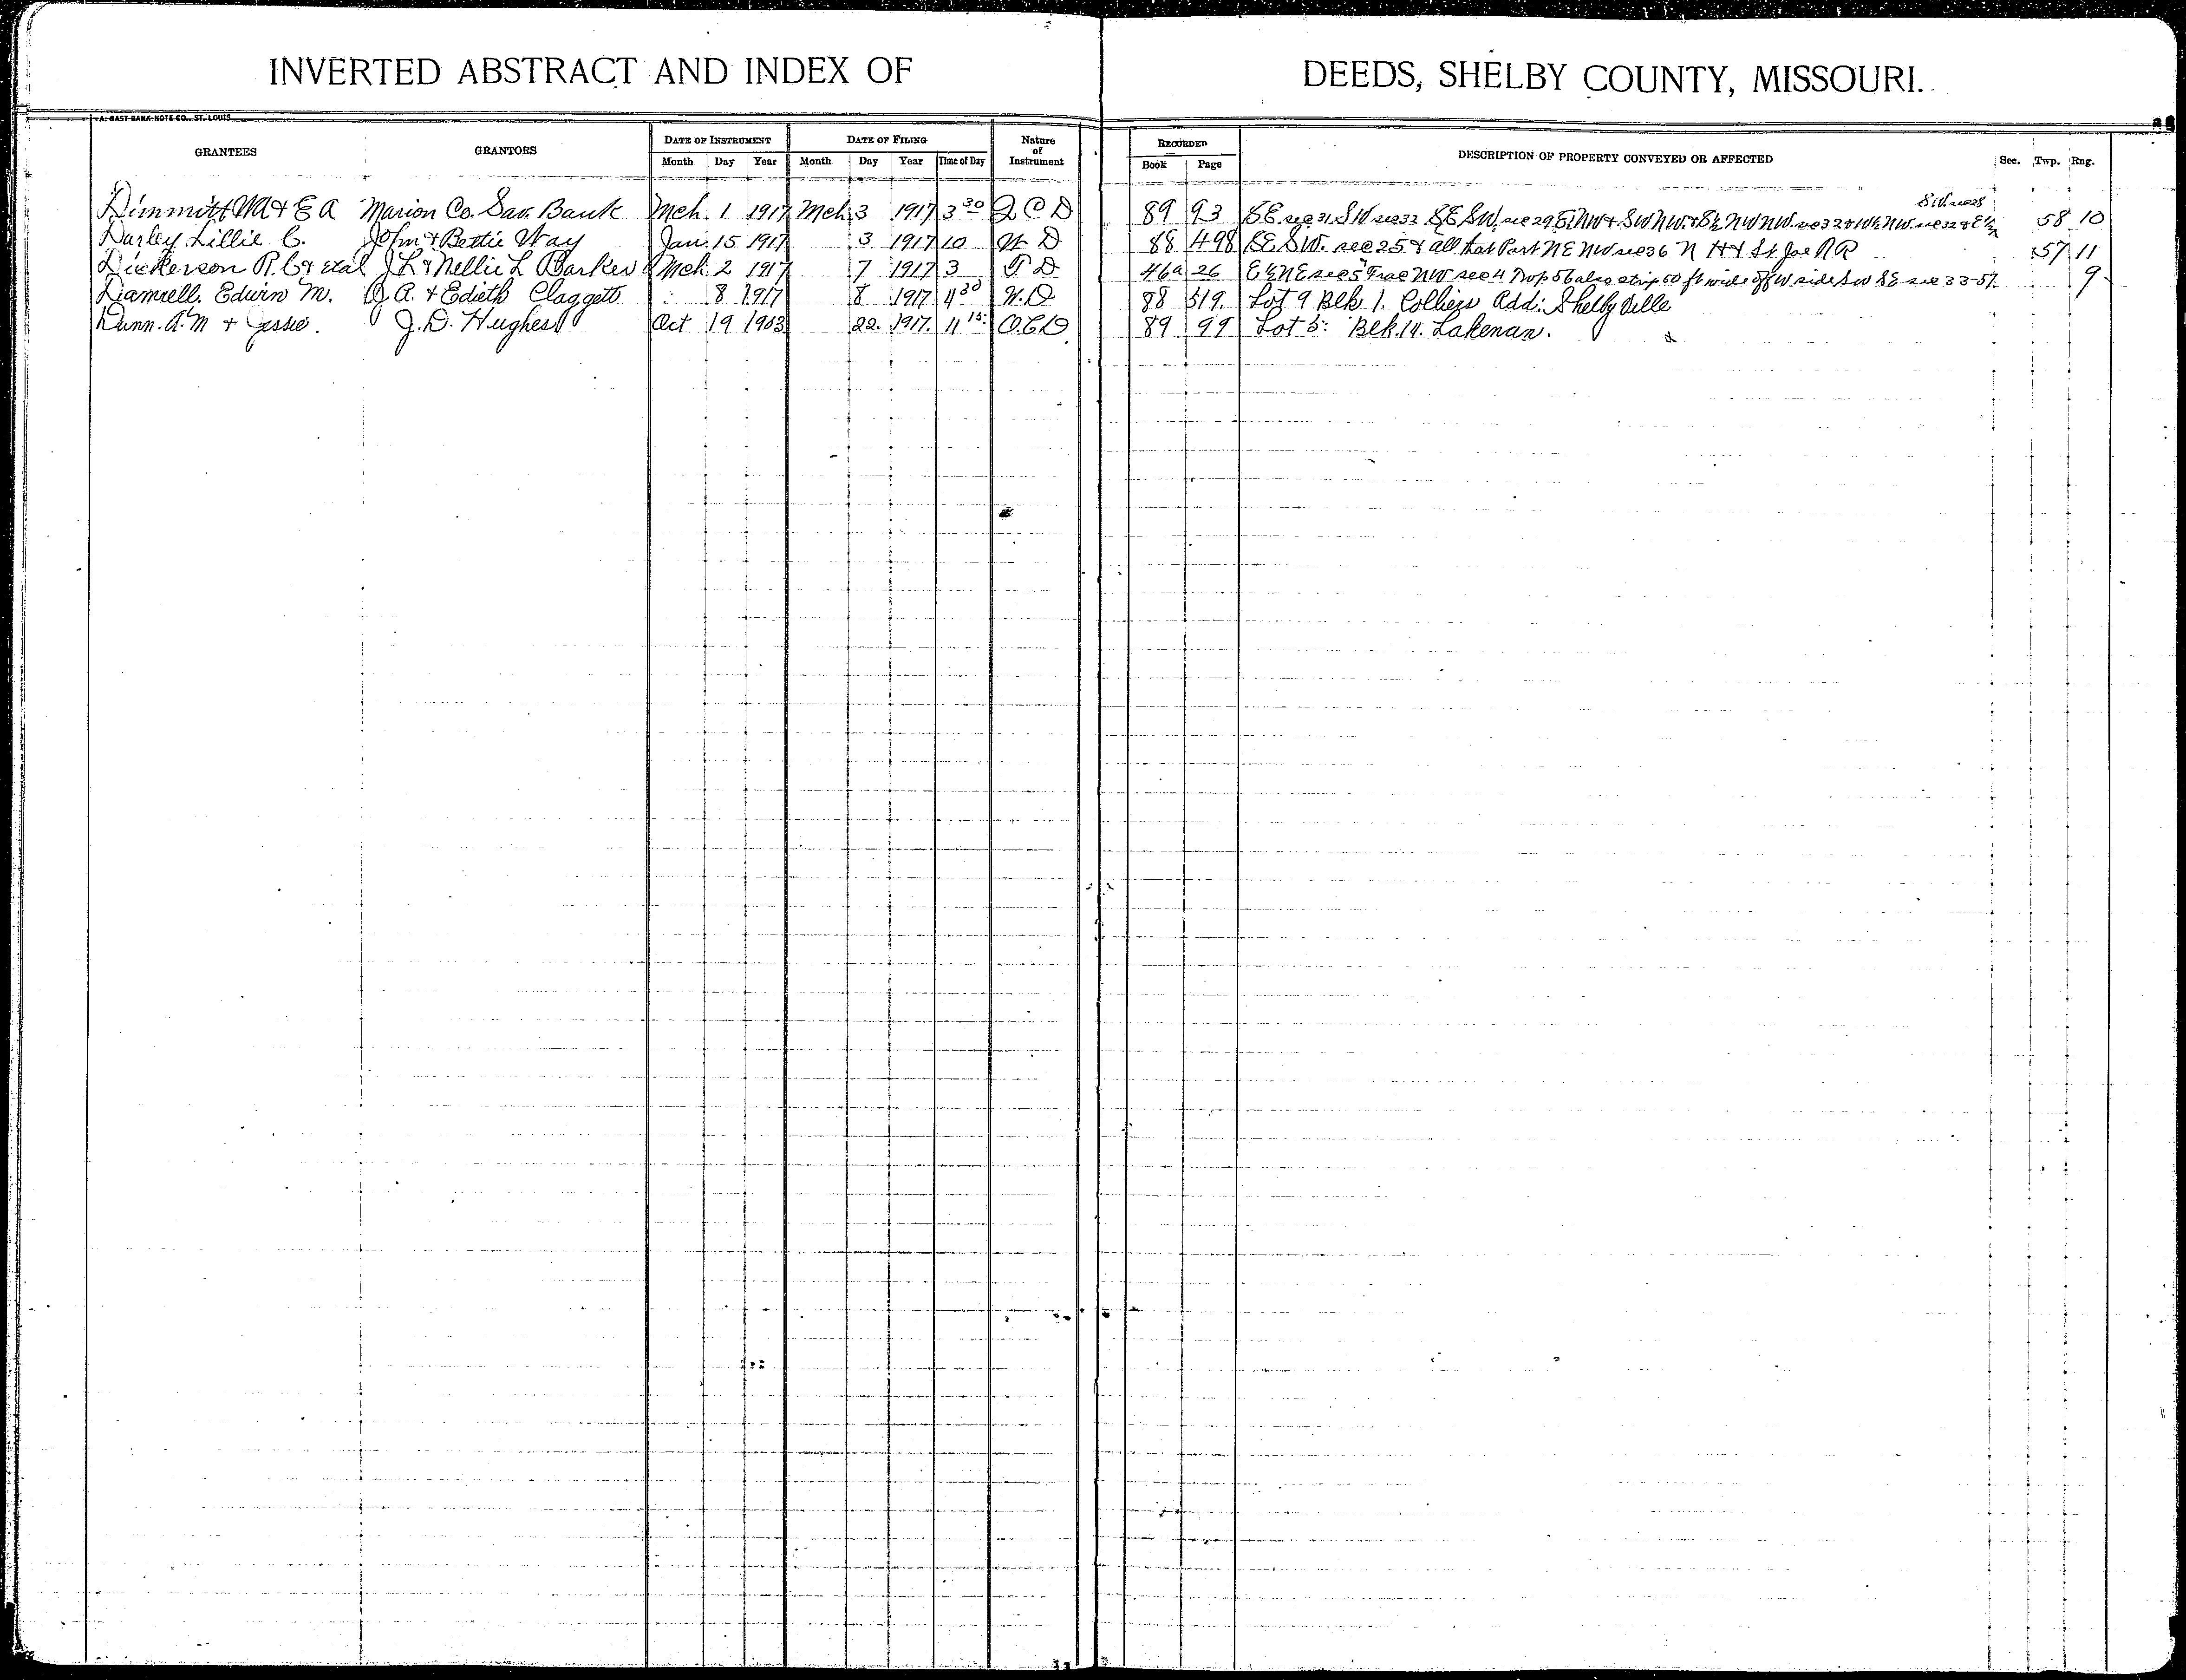 INVERTED ABSTRACT AND INDEX OF DEEDS, SHELBY COUNTY, MISSOURI.
A. GAST BANK NOTE CO., ST. LOUIS
GRANTEES GRANTORS DATE OF INSTRUMENT DATE OF FILING Nature of Instrument RECORDED DESCRIPTION OF PROPERTY CONVEYED OR AFFECTED Sec. Twp. Rng.
Month Day Year Month Day Year Time of Day Book Page
SW sec 28
Dimmitt & E A Marion Co. Sav. Bank Mch. 1 1917 Mch 3 1917 3 30 Q C D 89 93 SE sec 31 SW sec 32 SE SW sec 29 E½ NW & SW NW & S½ NW NW sec 32 & W½ NW sec 32 & E½ 58 10
Darley Lillie C. John & Bettie Way Jan. 15 1917 3 1917 10 W D 88 498 SE SW. sec 25 & all that Part NE NW sec 36 N H & St Joe R R 57 11
Dickerson R. C & etal J L & Nellie L Barker Mch. 2 1917 7 1917 3 T D 46a 26 E½ NE sec 5 Frac NW sec 4 Twp 56 also strip 50 ft wide off W side SW SE sec 33-57. 9
Damrell. Edwin M. A. & Edieth Claggett 8 1917 8 1917 4 30 W. D 88 519. Lot 9 Blk 1. Colliers Add: Shelbyville
Dunn. A. M & Jessie. J. D. Hughes Oct 19 1903 22. 1917. 11 15 Q.C.D 89 99 Lot 5: Blk. 14. Lakenan.